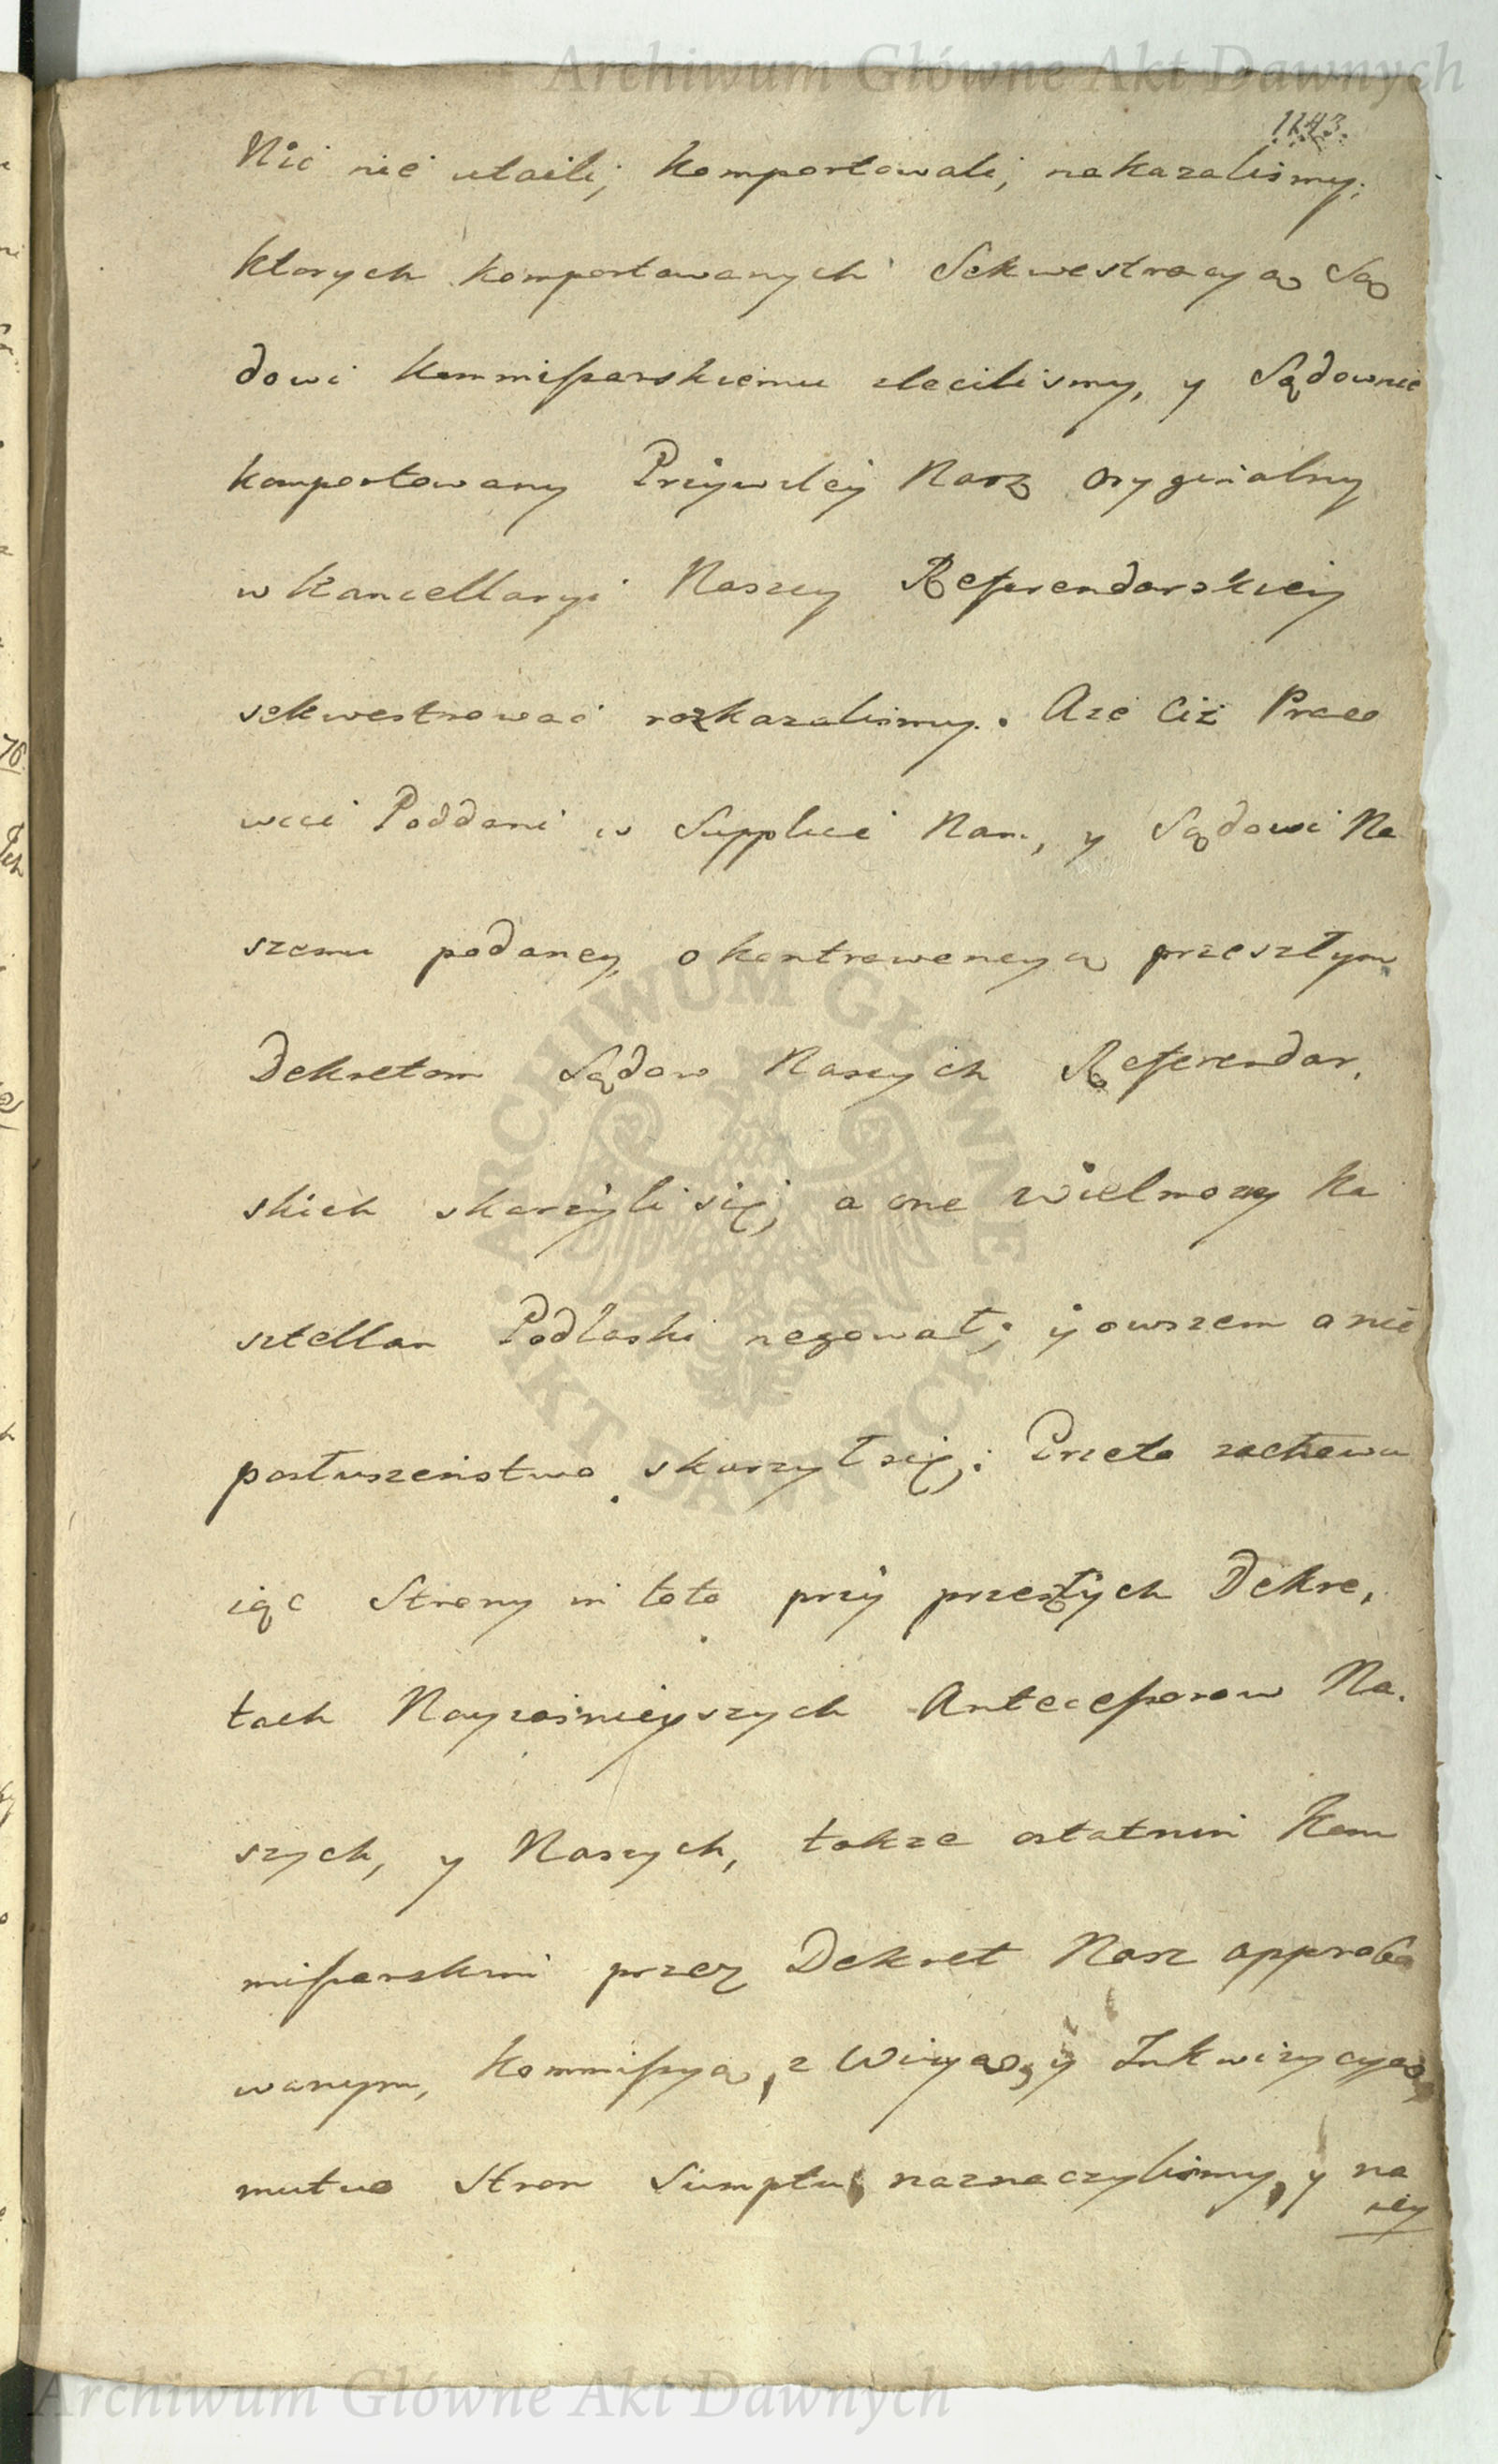 Archiwum Główne Akt Dawnych
1143.
Nic nie utaili, komportowali, nakazalismy,
ktorych komportowanych Sekwestracyą Są
dowi kommissarskiemu zlecilismy, y Sądownie
komportowany Przywiley Nasz oryginalny
w kancellaryi Naszey Referendarskiey
sekwestrować rozkazalismy. Aże Ciż Praco
wici Poddani w Supplice Nam, y Sądowi Na
szemu podaney, o kontrawencyą przeszłym
Dekretom Sądow Naszych Referendar,
skich skarżyli się, a one Wielmozny Ka
sztellan Podlaski negował, y owszem o nie
posłuszeństwo skarzył się; Przeto zachowu
iąc Strony in toto przy przeszłych Dekre,
tach Nayiaśnieyszych Antecessorow Na.
szych, y Naszych, także ostatnim Kom
missarskim przez Dekret Nasz approbo
wanym, Kommissyą, z Wizyą, y Inkwizycyą,
mutuo Stron Sumptu, naznaczylismy, y na
ARCHIWUM GŁÓWNE AKT DAWNYCH
Archiwum Główne Akt Dawnych